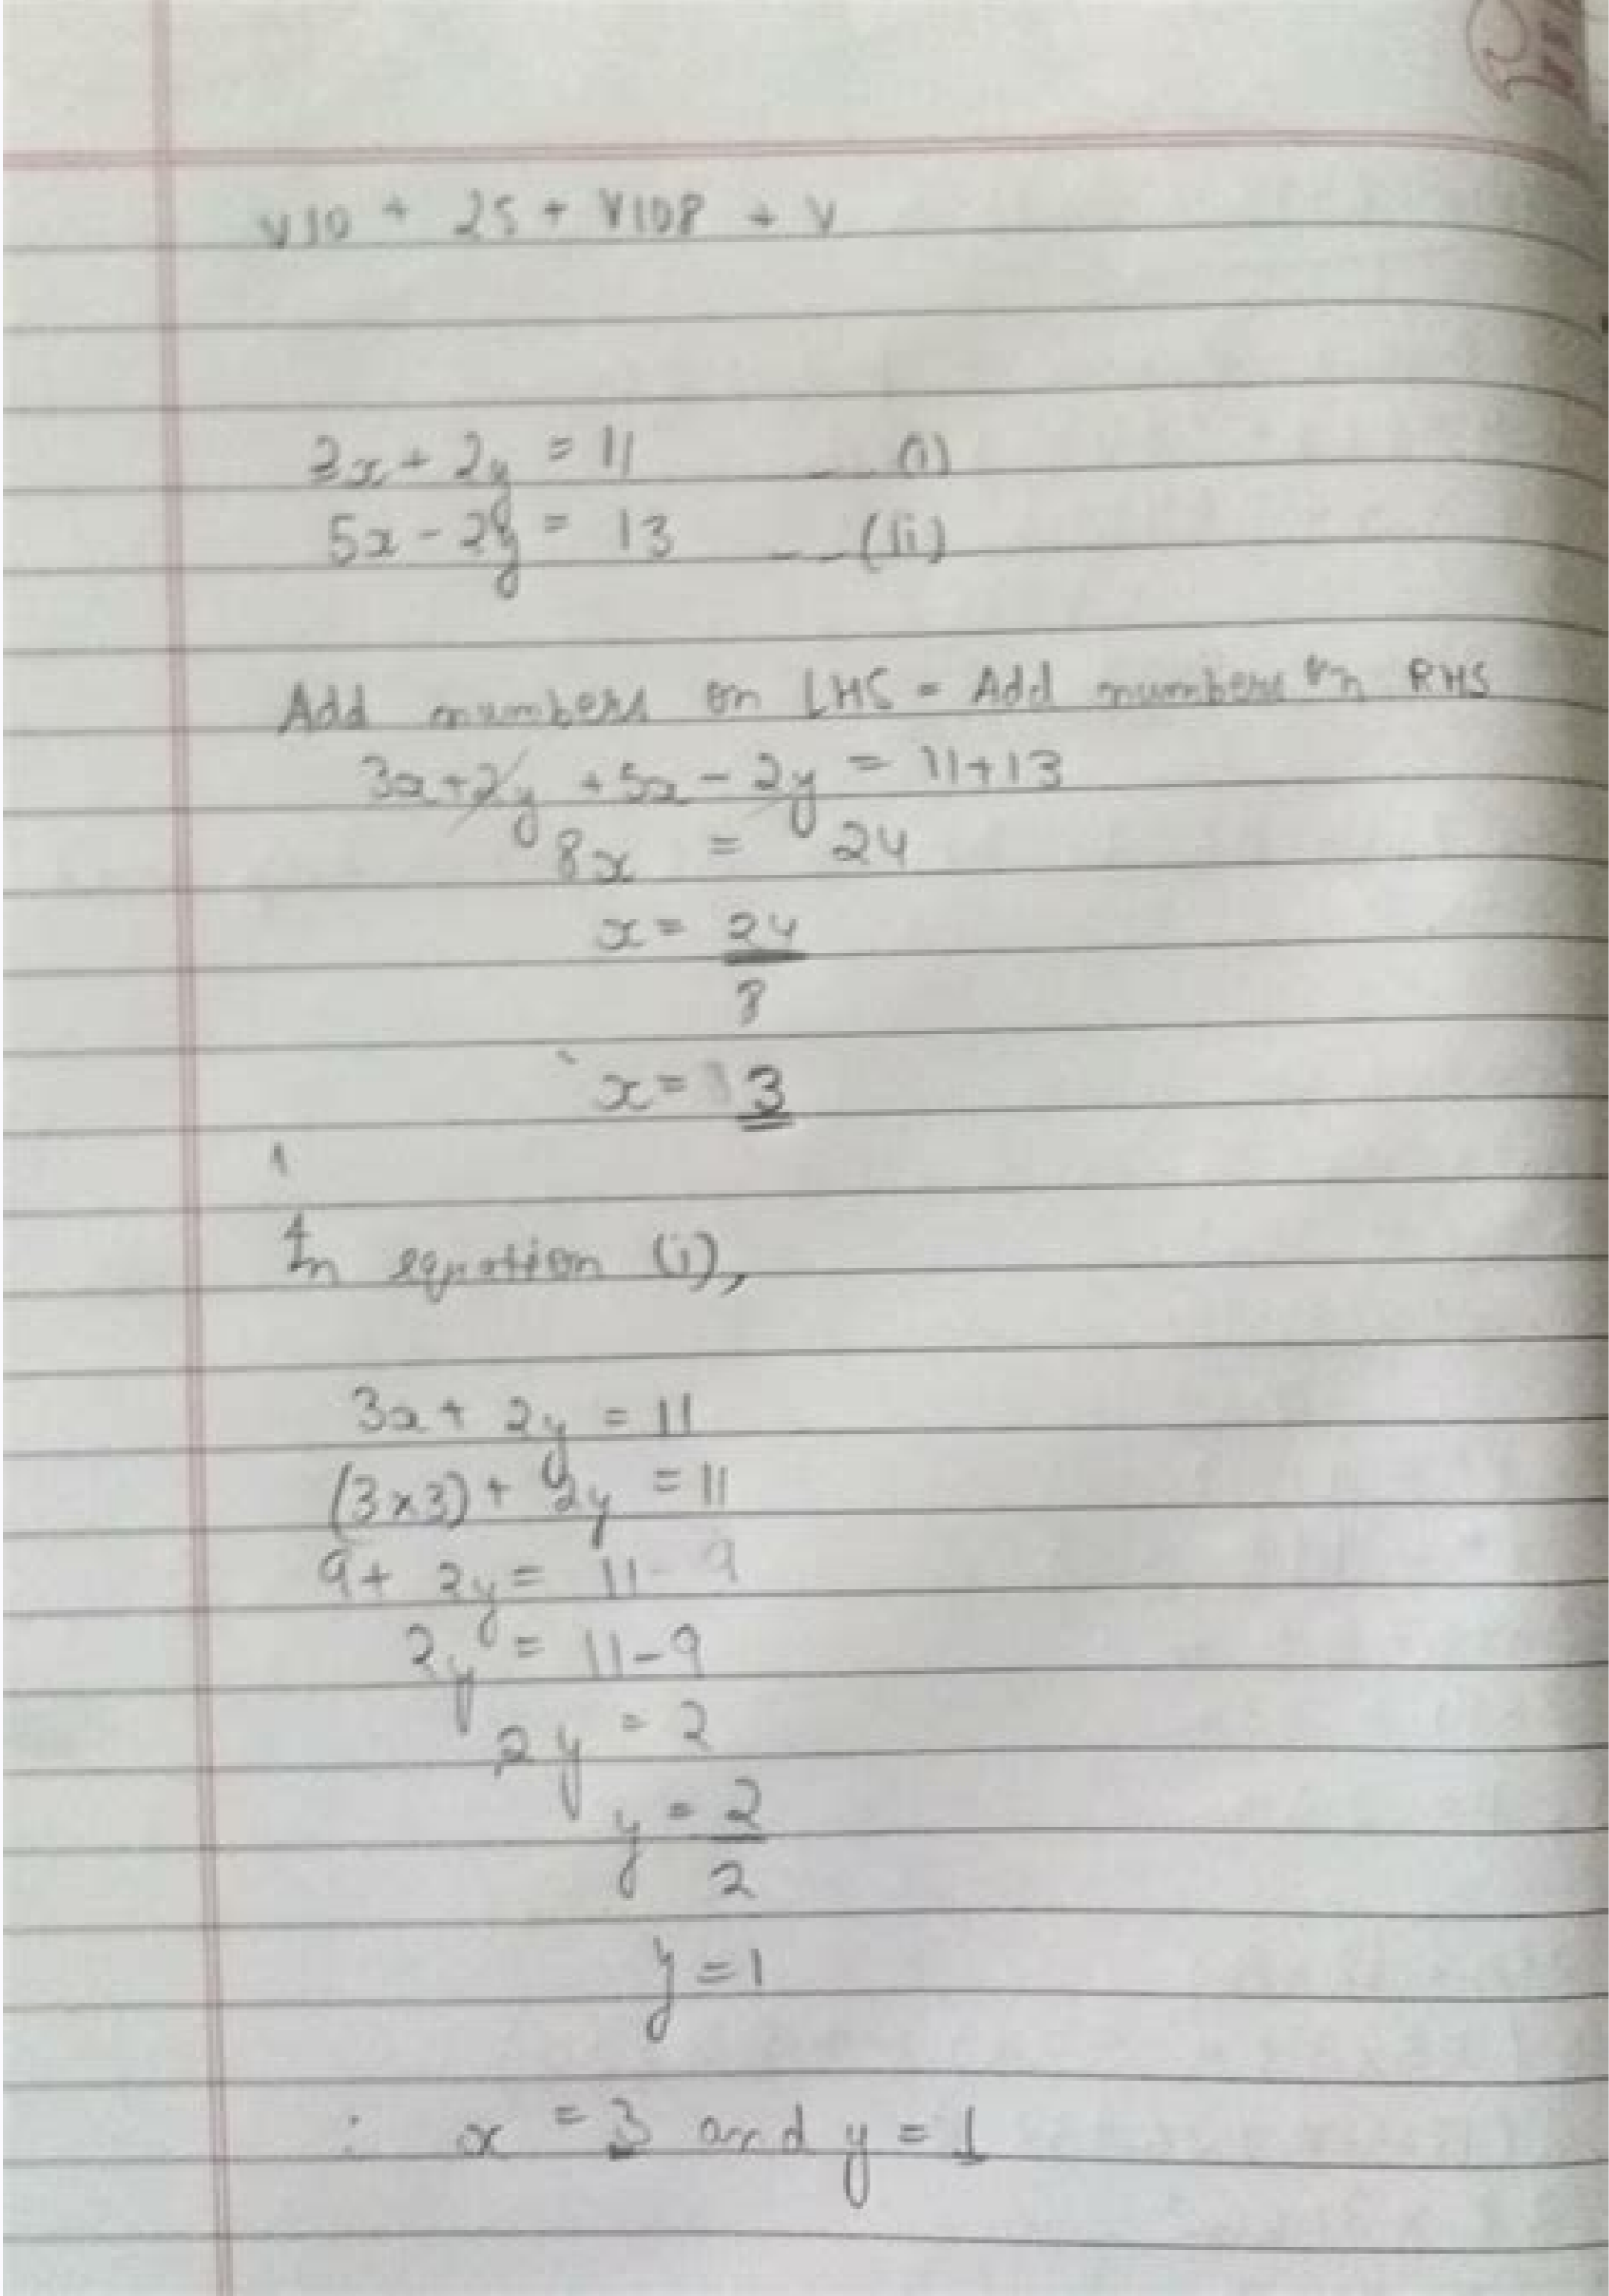 V10 + 25 + V108 + V
3x + 2y = 11 --- (i)
5x - 2y = 13 --- (ii)
Add numbers on LHS = Add numbers on RHS
3x + 2y + 5x - 2y = 11 + 13
8x = 24
x = 24
8
x = 3
In equation (i),
3x + 2y = 11
(3 × 3) + 2y = 11
9 + 2y = 11 - 9
2y = 11 - 9
2y = 2
y = 2
2
y = 1
∴ x = 3 and y = 1